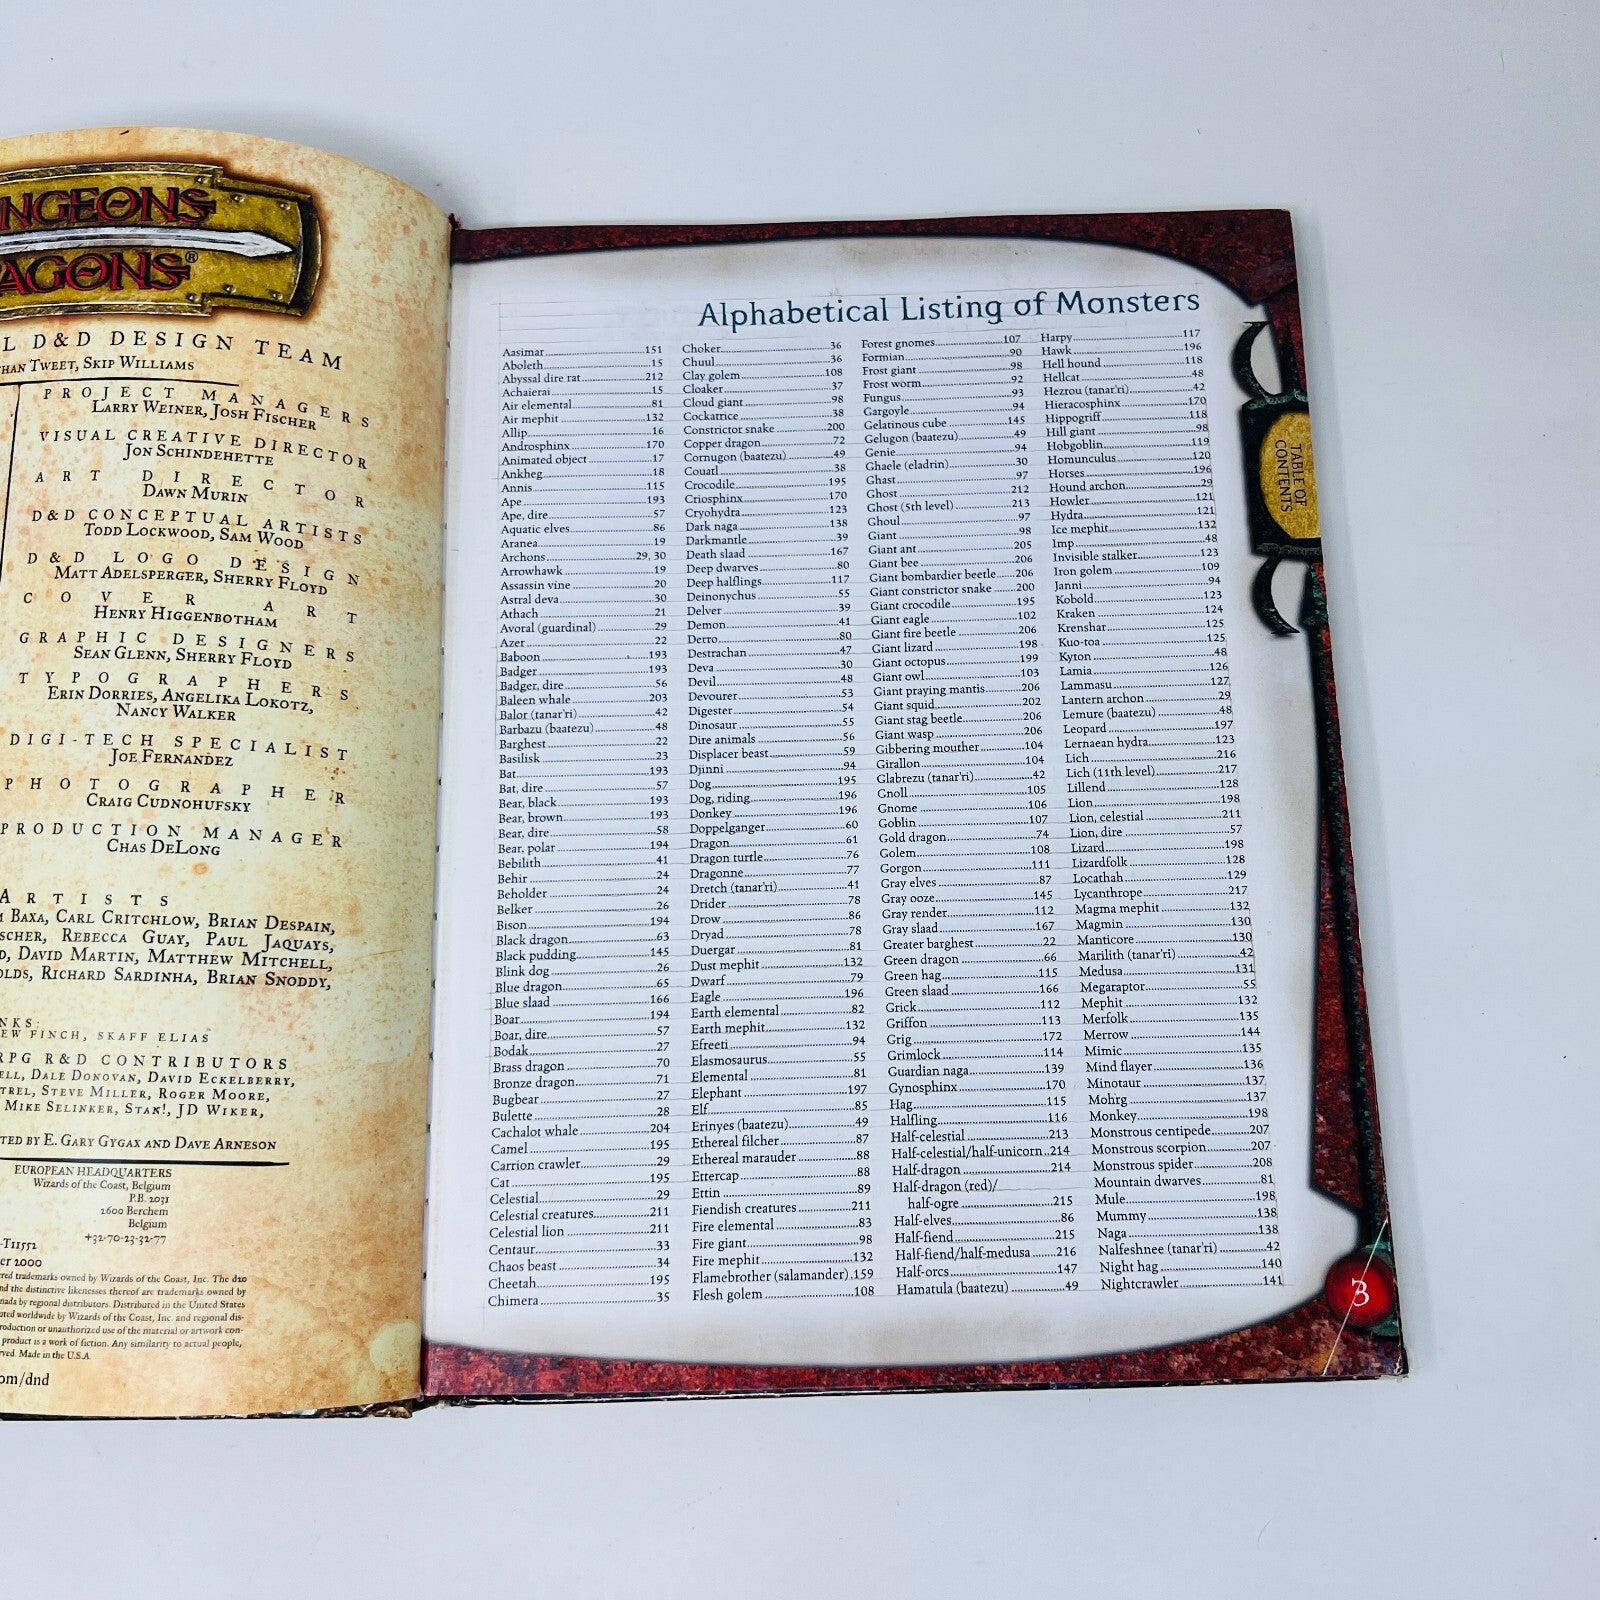 NGEONS
AGONS®
L D&D DESIGN TEAM
HAN TWEET, SKIP WILLIAMS
PROJECT MANAGERS
LARRY WEINER, JOSH FISCHER
VISUAL CREATIVE DIRECTOR
JON SCHINDEHETTE
ART DIRECTOR
DAWN MURIN
D&D CONCEPTUAL ARTISTS
TODD LOCKWOOD, SAM WOOD
D&D LOGO DESIGN
MATT ADELSPERGER, SHERRY FLOYD
COVER ART
HENRY HIGGENBOTHAM
GRAPHIC DESIGNERS
SEAN GLENN, SHERRY FLOYD
TYPOGRAPHERS
ERIN DORRIES, ANGELIKA LOKOTZ,
NANCY WALKER
DIGI-TECH SPECIALIST
JOE FERNANDEZ
PHOTOGRAPHER
CRAIG CUDNOHUFSKY
PRODUCTION MANAGER
CHAS DELONG
ARTISTS
M BAXA, CARL CRITCHLOW, BRIAN DESPAIN,
SCHER, REBECCA GUAY, PAUL JAQUAYS,
D, DAVID MARTIN, MATTHEW MITCHELL,
OLDS, RICHARD SARDINHA, BRIAN SNODDY,
NKS:
EW FINCH, SKAFF ELIAS
RPG R&D CONTRIBUTORS
ELL, DALE DONOVAN, DAVID ECKELBERRY,
TREL, STEVE MILLER, ROGER MOORE,
MIKE SELINKER, STAN!, JD WIKER,
TED BY E. GARY GYGAX AND DAVE ARNESON
EUROPEAN HEADQUARTERS
Wizards of the Coast, Belgium
P.B. 2031
2600 Berchem
Belgium
+32-70-23-32-77
-T11552
er 2000
red trademarks owned by Wizards of the Coast, Inc. The d20
nd the distinctive likenesses thereof are trademarks owned by
nada by regional distributors. Distributed in the United States
uted worldwide by Wizards of the Coast, Inc. and regional dis-
roduction or unauthorized use of the material or artwork con-
product is a work of fiction. Any similarity to actual people,
rved. Made in the U.S.A.
om/dnd
Alphabetical Listing of Monsters
Aasimar 151
Aboleth 15
Abyssal dire rat 212
Achaierai 15
Air elemental 81
Air mephit 132
Allip 16
Androsphinx 170
Animated object 17
Ankheg 18
Annis 115
Ape 193
Ape, dire 57
Aquatic elves 86
Aranea 19
Archons 29, 30
Arrowhawk 19
Assassin vine 20
Astral deva 30
Athach 21
Avoral (guardinal) 29
Azer 22
Baboon 193
Badger 193
Badger, dire 56
Baleen whale 203
Balor (tanar'ri) 42
Barbazu (baatezu) 48
Barghest 22
Basilisk 23
Bat 193
Bat, dire 57
Bear, black 193
Bear, brown 193
Bear, dire 58
Bear, polar 194
Bebilith 41
Behir 24
Beholder 24
Belker 26
Bison 194
Black dragon 63
Black pudding 145
Blink dog 26
Blue dragon 65
Blue slaad 166
Boar 194
Boar, dire 57
Bodak 27
Brass dragon 70
Bronze dragon 71
Bugbear 27
Bulette 28
Cachalot whale 204
Camel 195
Carrion crawler 29
Cat 195
Celestial 29
Celestial creatures 211
Celestial lion 211
Centaur 33
Chaos beast 34
Cheetah 195
Chimera 35
Choker 36
Chuul 36
Clay golem 108
Cloaker 37
Cloud giant 98
Cockatrice 38
Constrictor snake 200
Copper dragon 72
Cornugon (baatezu) 49
Couatl 38
Crocodile 195
Criosphinx 170
Cryohydra 123
Dark naga 138
Darkmantle 39
Death slaad 167
Deep dwarves 80
Deep halflings 117
Deinonychus 55
Delver 39
Demon 41
Derro 80
Destrachan 47
Deva 30
Devil 48
Devourer 53
Digester 54
Dinosaur 55
Dire animals 56
Displacer beast 59
Djinni 94
Dog 195
Dog, riding 196
Donkey 196
Doppelganger 60
Dragon 61
Dragon turtle 76
Dragonne 77
Dretch (tanar'ri) 41
Drider 78
Drow 86
Dryad 78
Duergar 81
Dust mephit 132
Dwarf 79
Eagle 196
Earth elemental 82
Earth mephit 132
Efreeti 94
Elasmosaurus 55
Elemental 81
Elephant 197
Elf 85
Erinyes (baatezu) 49
Ethereal filcher 87
Ethereal marauder 88
Ettercap 88
Ettin 89
Fiendish creatures 211
Fire elemental 83
Fire giant 98
Fire mephit 132
Flamebrother (salamander) 159
Flesh golem 108
Forest gnomes 107
Formian 90
Frost giant 98
Frost worm 92
Fungus 93
Gargoyle 94
Gelatinous cube 145
Gelugon (baatezu) 49
Genie 94
Ghaele (eladrin) 30
Ghast 97
Ghost 212
Ghost (5th level) 213
Ghoul 97
Giant 98
Giant ant 205
Giant bee 206
Giant bombardier beetle 206
Giant constrictor snake 200
Giant crocodile 195
Giant eagle 102
Giant fire beetle 206
Giant lizard 198
Giant octopus 199
Giant owl 103
Giant praying mantis 206
Giant squid 202
Giant stag beetle 206
Giant wasp 206
Gibbering mouther 104
Girallon 104
Glabrezu (tanar'ri) 42
Gnoll 105
Gnome 106
Goblin 107
Gold dragon 74
Golem 108
Gorgon 111
Gray elves 87
Gray ooze 145
Gray render 112
Gray slaad 167
Greater barghest 22
Green dragon 66
Green hag 115
Green slaad 166
Grick 112
Griffon 113
Grig 172
Grimlock 114
Guardian naga 139
Gynosphinx 170
Hag 115
Halfling 116
Half-celestial 213
Half-celestial/half-unicorn 214
Half-dragon 214
Half-dragon (red)/
half-ogre 215
Half-elves 86
Half-fiend 215
Half-fiend/half-medusa 216
Half-orcs 147
Hamatula (baatezu) 49
Harpy 117
Hawk 196
Hell hound 118
Hellcat 48
Hezrou (tanar'ri) 42
Hieracosphinx 170
Hippogriff 118
Hill giant 98
Hobgoblin 119
Homunculus 120
Horses 196
Hound archon 29
Howler 121
Hydra 121
Ice mephit 132
Imp 48
Invisible stalker 123
Iron golem 109
Janni 94
Kobold 123
Kraken 124
Krenshar 125
Kuo-toa 125
Kyton 48
Lamia 126
Lammasu 127
Lantern archon 29
Lemure (baatezu) 48
Leopard 197
Lernaean hydra 123
Lich 216
Lich (11th level) 217
Lillend 128
Lion 198
Lion, celestial 211
Lion, dire 57
Lizard 198
Lizardfolk 128
Locathah 129
Lycanthrope 217
Magma mephit 132
Magmin 130
Manticore 130
Marilith (tanar'ri) 42
Medusa 131
Megaraptor 55
Mephit 132
Merfolk 135
Merrow 144
Mimic 135
Mind flayer 136
Minotaur 137
Mohrg 137
Monkey 198
Monstrous centipede 207
Monstrous scorpion 207
Monstrous spider 208
Mountain dwarves 81
Mule 198
Mummy 138
Naga 138
Nalfeshnee (tanar'ri) 42
Night hag 140
Nightcrawler 141
TABLE OF
CONTENTS
3